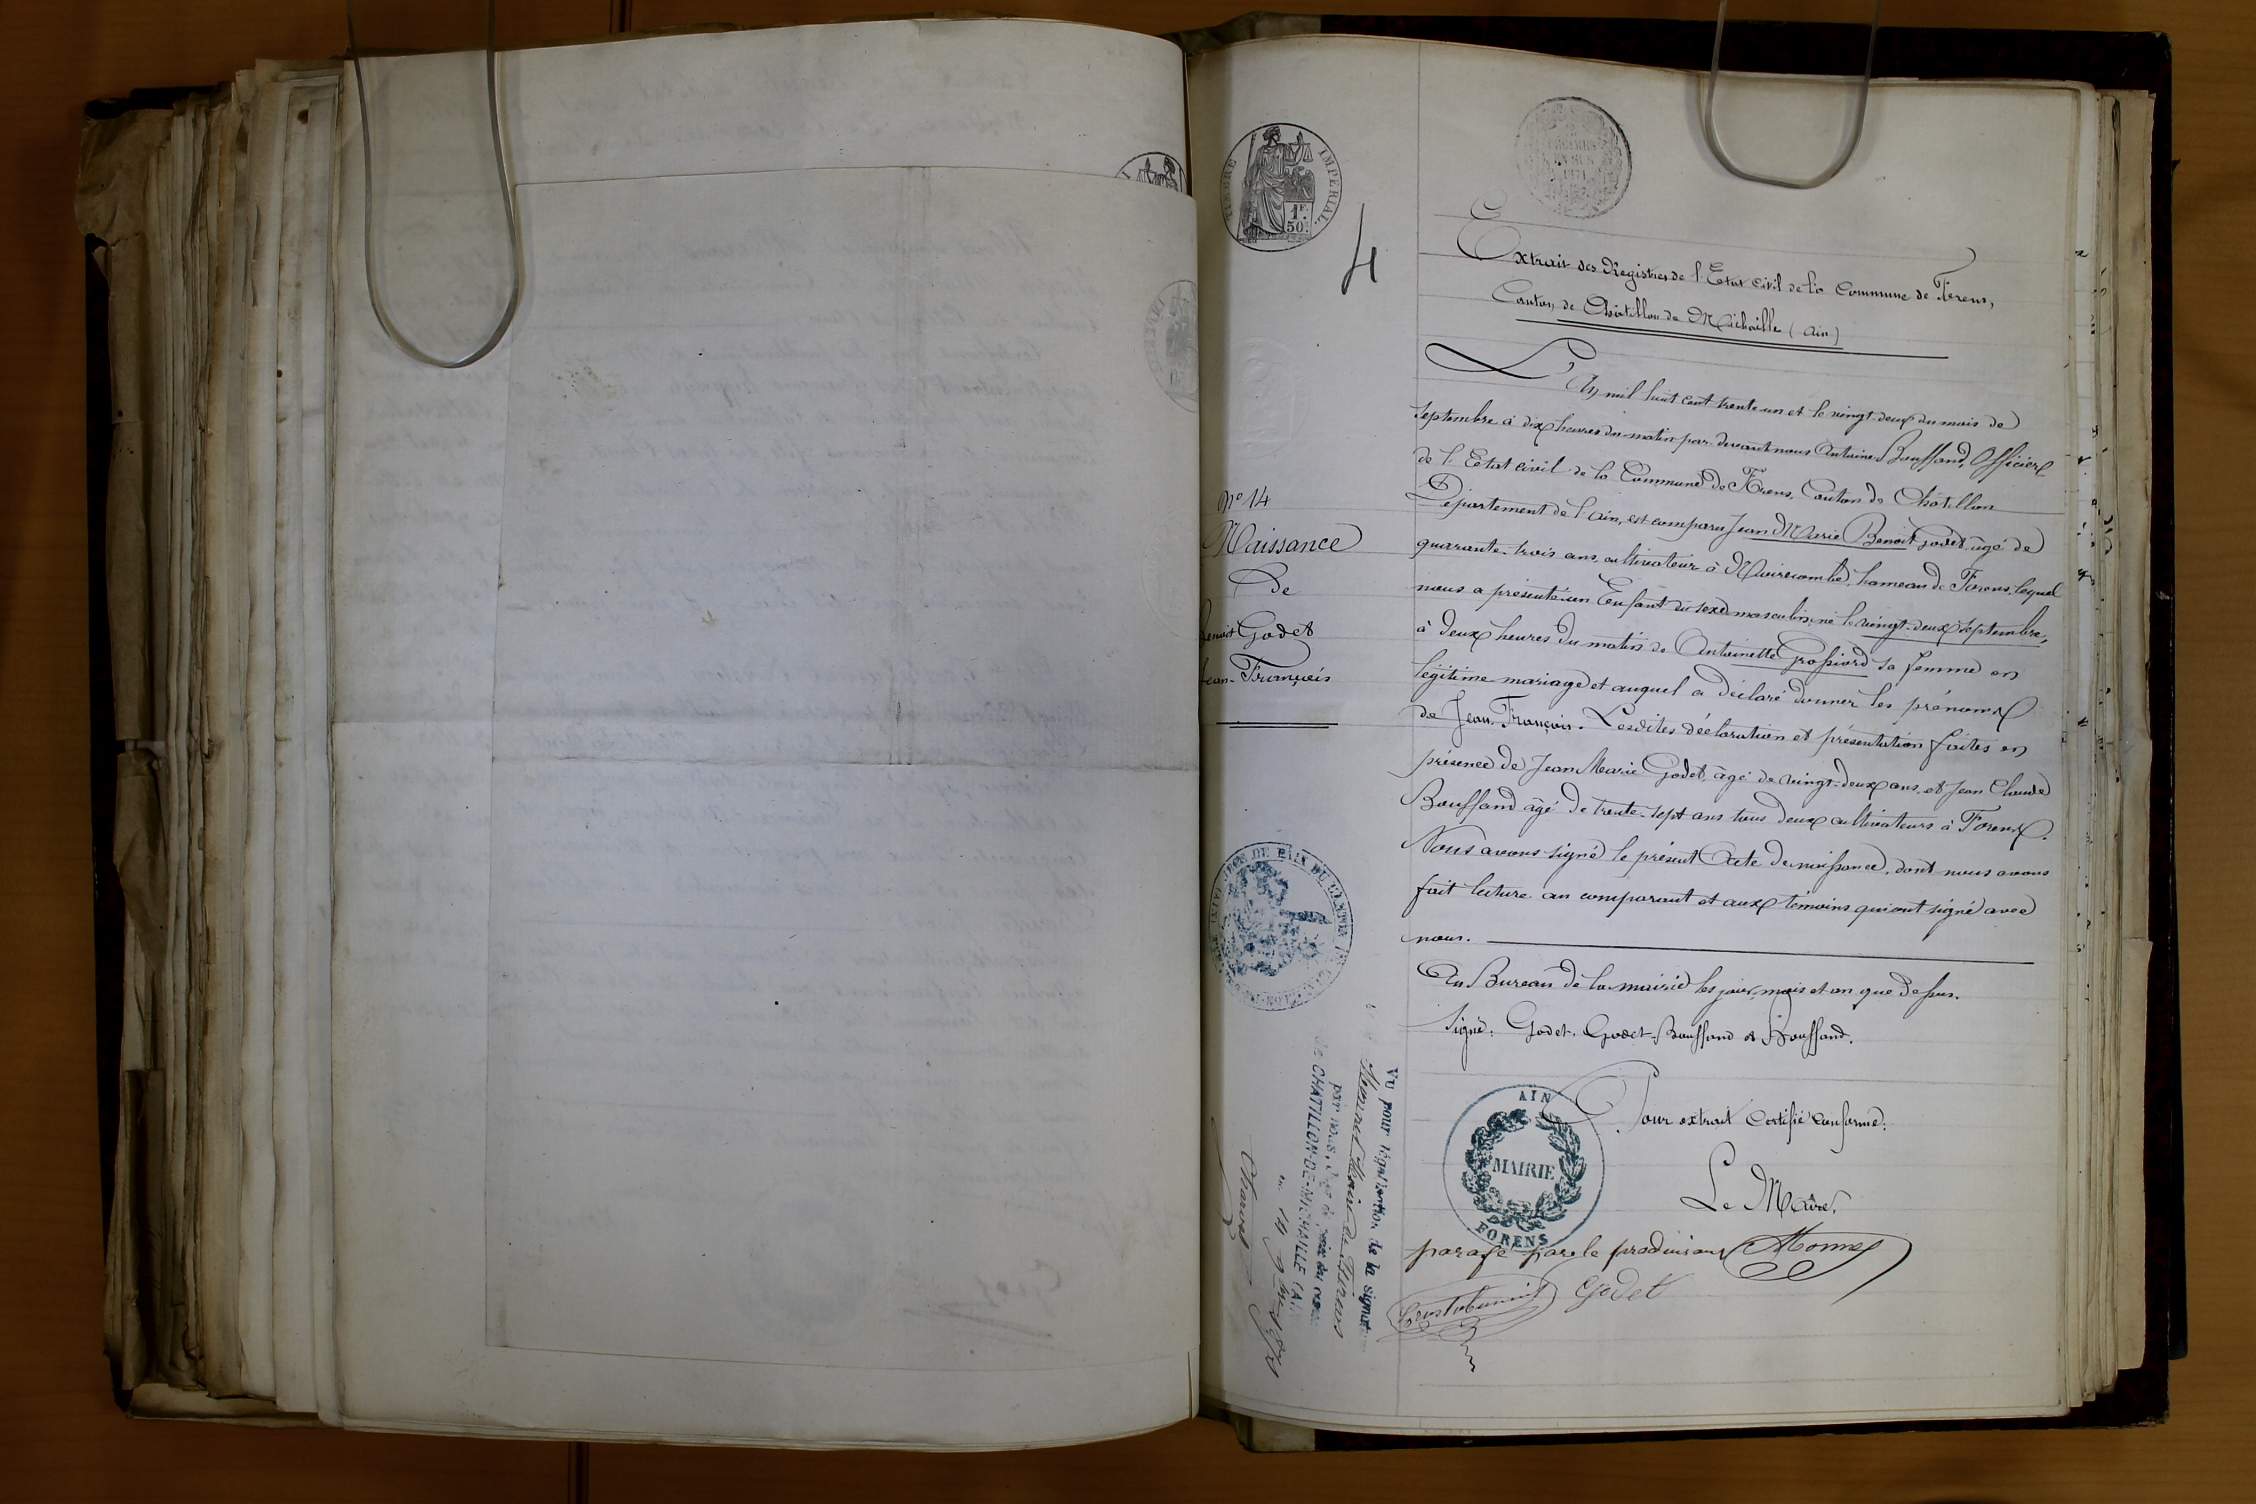 TIMBRE IMPERIAL
1F.
50C.
4
Extrait des Registres de l'Etat civil de la Commune de Forens,
Canton de Chatillon de Michaille (Ain)
L'An mil huit cent trente un et le vingt-deux du mois de
septembre à dix heures du matin par devant nous Antoine Bouffand, Officier
de l'Etat civil de la Commune de Forens, Canton de Châtillon
Département de l'Ain, est comparu Jean Marie Benoit Godet, âgé de
quarante-trois ans, cultivateur à Noirecombe, hameau de Forens, lequel
nous a présenté un Enfant du sexe masculin, né le vingt-deux septembre,
à deux heures du matin de Antoinette Grossiord sa femme en
légitime mariage et auquel a déclaré donner les prénoms
de Jean-François. Lesdites déclaration et présentation faites en
présence de Jean Marie Godet, âgé de vingt-deux ans, et Jean Claude
Bouffand âgé de trente-sept ans tous deux cultivateurs à Forens.
Nous avons signé le présent Acte de naissance, dont nous avons
fait lecture au comparant et aux témoins qui ont signé avec
nous.
Au Bureau de la mairie les jour, mois et an que dessus.
Signé: Godet. Godet. Bouffand & Bouffand.
Pour extrait Certifié Conforme:
Le Maire,
parafé par le
Godet
N° 14
Naissance
De
Benoit Godet
Jean-François
AIN
MAIRIE
FORENS
Vu pour légalisation de la signat
Maire de Forens
par nous, Juge de paix du
de CHATILLON-DE-MICHAILLE (A